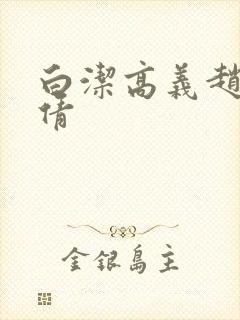 白潔高義趙
倩
金銀島主